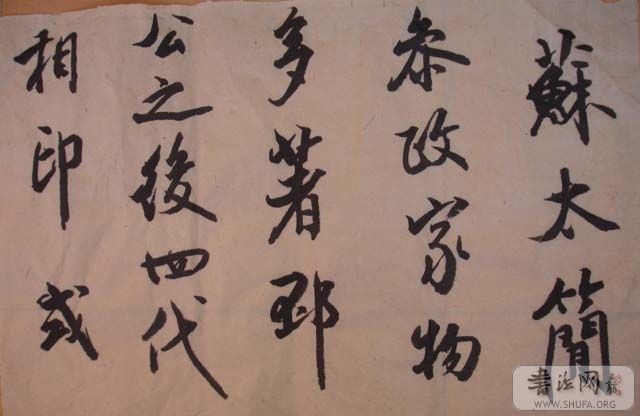 蘇太簡
叅政家物
多著邳
公之後四代
相印或
書法网
WWW.SHUFA.ORG